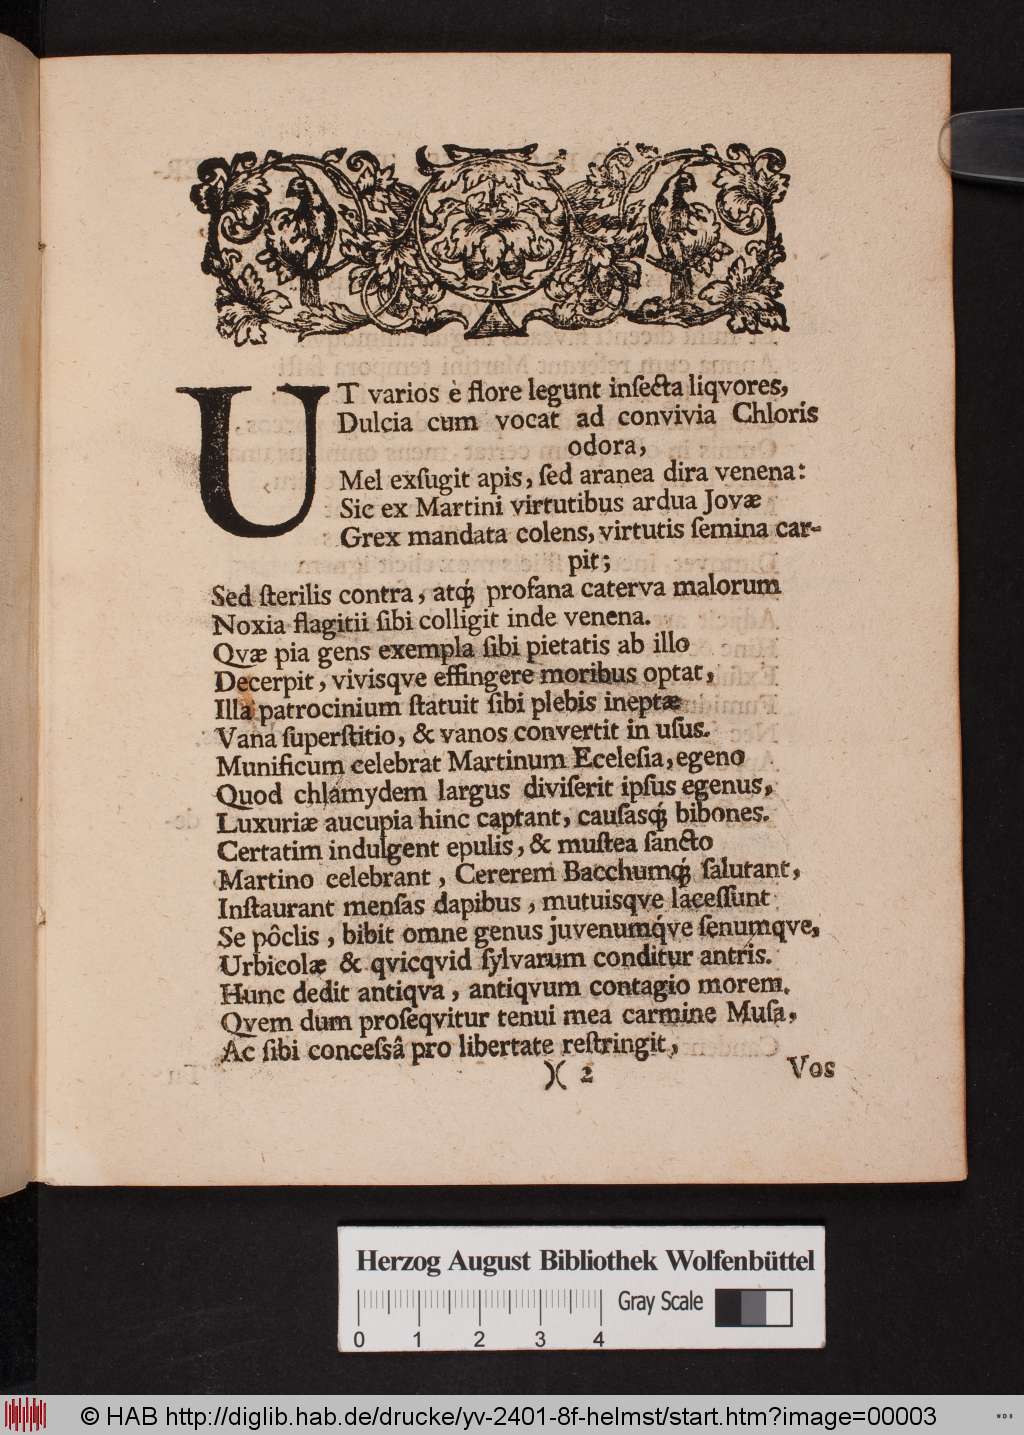 UT varios è flore legunt inſecta liqvores,
Dulcia cum vocat ad convivia Chloris
odora,
Mel exſugit apis, ſed aranea dira venena:
Sic ex Martini virtutibus ardua Jovæ
Grex mandata colens, virtutis ſemina car-
pit;
Sed ſterilis contra, atq́; profana caterva malorum
Noxia flagitii ſibi colligit inde venena.
Qvæ pia gens exempla ſibi pietatis ab illo
Decerpit, vivisqve effingere moribus optat,
Illa patrocinium ſtatuit ſibi plebis ineptæ
Vana ſuperſtitio, & vanos convertit in uſus.
Munificum celebrat Martinum Eceleſia, egeno
Quod chlamydem largus diviſerit ipſus egenus,
Luxuriæ aucupia hinc captant, cauſasq́; bibones.
Certatim indulgent epulis, & muſtea ſancto
Martino celebrant, Cererem Bacchumq́; ſalutant,
Inſtaurant menſas dapibus, mutuisqve laceſſunt
Se pôclis, bibit omne genus juvenumq́ve ſenumqve,
Urbicolæ & qvicqvid ſylvarum conditur antris.
Hunc dedit antiqva, antiqvum contagio morem.
Qvem dum proſeqvitur tenui mea carmine Muſa,
Ac ſibi conceſsâ pro libertate reſtringit,
)( 2
Vos
Herzog August Bibliothek Wolfenbüttel
Gray Scale
0 1 2 3 4
© HAB http://diglib.hab.de/drucke/yv-2401-8f-helmst/start.htm?image=00003
WDB